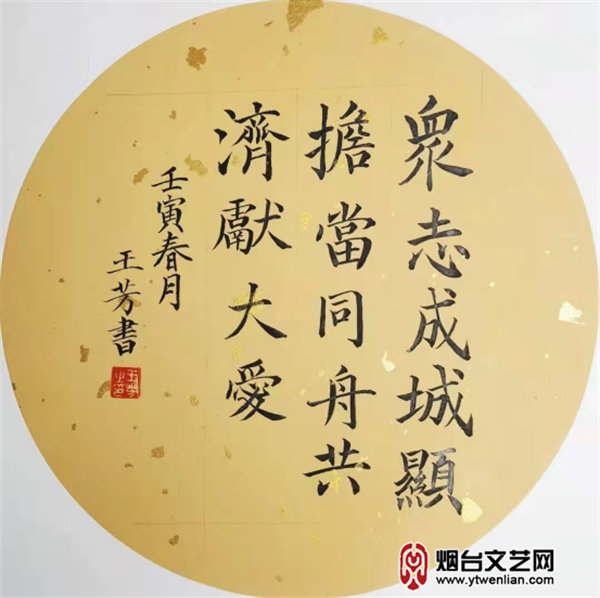 眾志成城顯
擔當同舟共
濟獻大愛
壬寅春月
王芳書
王芳之印
烟台文艺网
www.ytwenlian.com